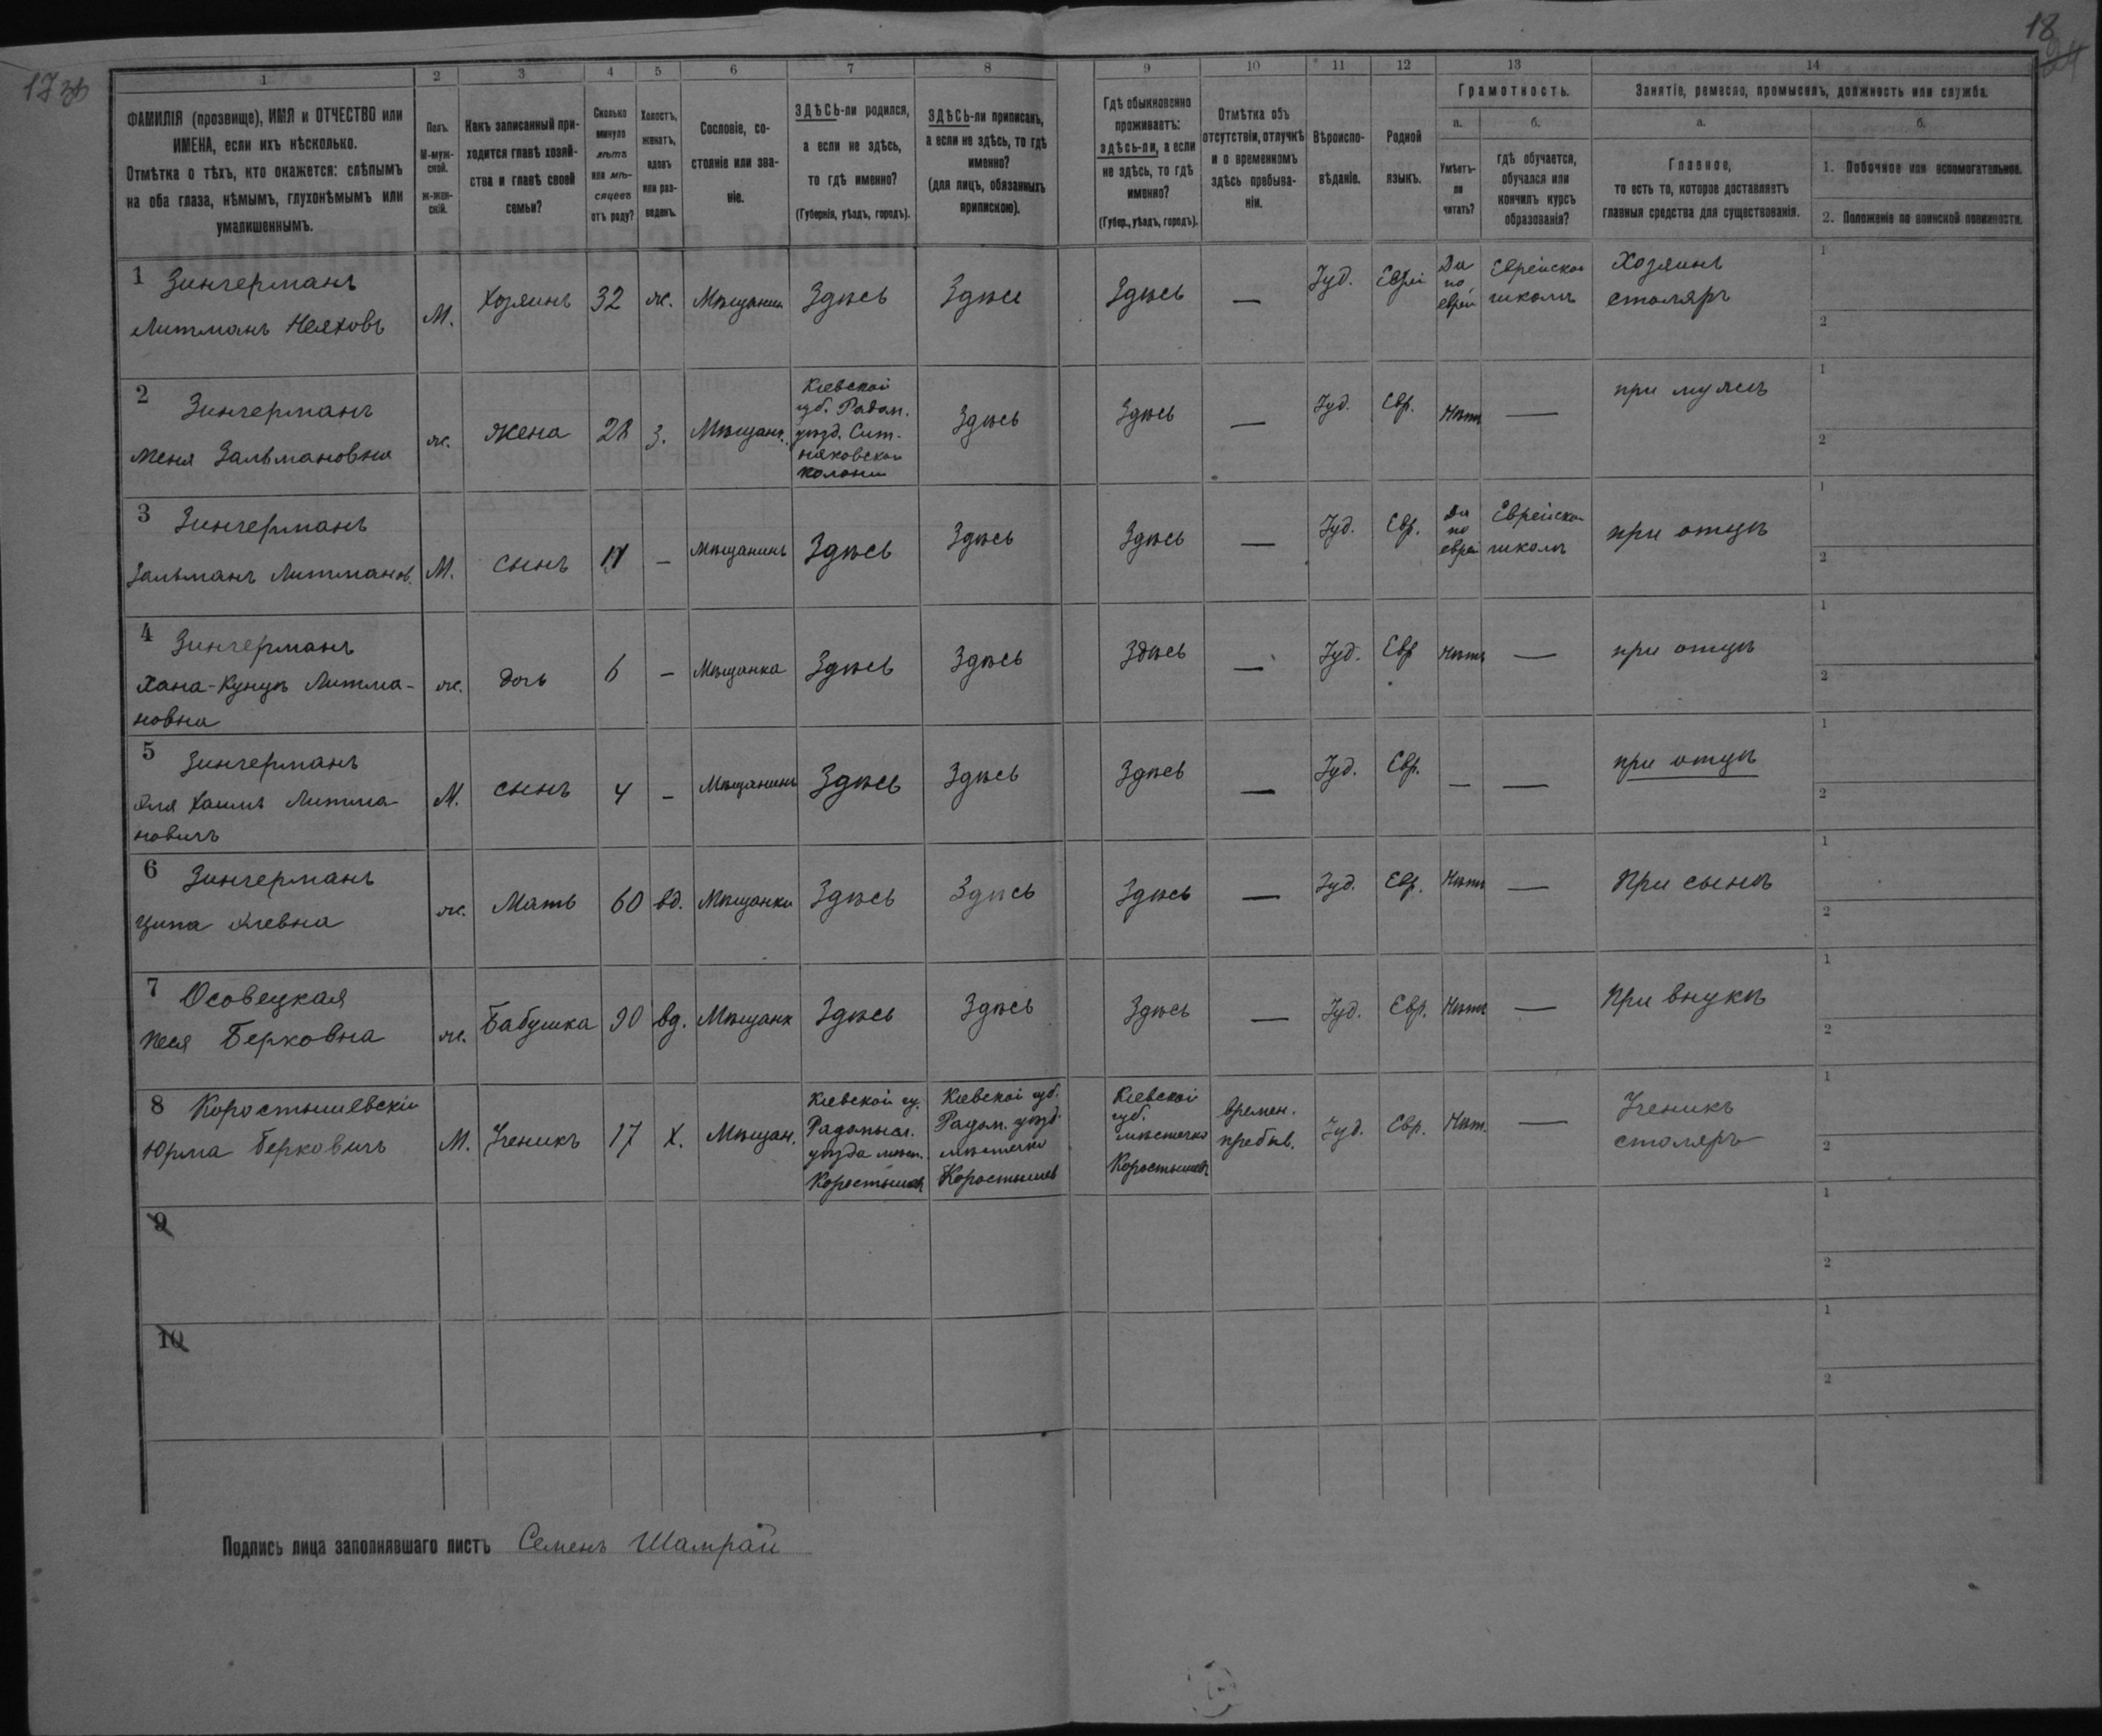 17 зв
18
24
1
2
3
4
5
6
7
8
9
10
11
12
13
14
ФАМИЛІЯ (прозвище), ИМЯ и ОТЧЕСТВО или
ИМЕНА, если ихъ нѣсколько.
Отмѣтка о тѣхъ, кто окажется: слѣпымъ
на оба глаза, нѣмымъ, глухонѣмымъ или
умалишеннымъ.
Полъ.
М-муж-
ской.
Ж-жен-
скій.
Какъ записанный при-
ходится главѣ хозяй-
ства и главѣ своей
семьи?
Сколько
минуло
лѣтъ
или мѣ-
сяцевъ
отъ роду?
Холостъ,
женатъ,
вдовъ
или раз-
веденъ.
Сословіе, со-
стояніе или зва-
ніе.
ЗДѢСЬ-ли родился,
а если не здѣсь,
то гдѣ именно?
(Губернія, уѣздъ, городъ).
ЗДѢСЬ-ли приписанъ,
а если не здѣсь, то гдѣ
именно?
(для лицъ, обязанныхъ
припискою).
Гдѣ обыкновенно
проживаетъ:
здѣсь-ли, а если
не здѣсь, то гдѣ
именно?
(Губер., уѣздъ, городъ).
Отмѣтка объ
отсутствіи, отлучкѣ
и о временномъ
здѣсь пребыва-
ніи.
Вѣроиспо-
вѣданіе.
Родной
языкъ.
Грамотность.
а.
Умѣетъ-
ли
читать?
б.
гдѣ обучается,
обучался или
кончилъ курсъ
образованія?
Занятіе, ремесло, промыселъ, должность или служба.
а.
Главное,
то есть то, которое доставляетъ
главныя средства для существованія.
б.
1. Побочное или вспомогательное.
2. Положеніе по воинской повинности.
1 Зингерманъ
Литманъ Неяховъ
М.
Хозяинъ
32
ж.
Мѣщанин
Здѣсь
Здѣсь
Здѣсь
—
Іуд.
Еврей
Да
по
еврей
Еврейской
школѣ
Хозяинъ
столяръ
1
2
2 Зингерманъ
Меня Зальмановна
ж.
жена
28
З.
Мѣщанк.
Кіевской
губ. Радом.
уѣзд. Сит-
няковской
колоніи
Здѣсь
Здѣсь
—
Іуд.
Евр.
Нѣтъ
—
при мужѣ
1
2
3 Зингерманъ
Зальманъ Литманов.
М.
сынъ
–
Мѣщанинъ
Здѣсь
Здѣсь
Здѣсь
—
Іуд.
Евр.
Да
по
еврей
Еврейской
школѣ
при отцѣ
1
2
4 Зингерманъ
Хана-Куция Литма-
новна
ж.
дочь
6
–
Мѣщанка
Здѣсь
Здѣсь
Здѣсь
—
Іуд.
Евр
Нѣтъ
—
при отцѣ
1
2
5 Зингерманъ
Хаимъ Литма
новичъ
М.
сынъ
4
–
Мѣщанинъ
Здѣсь
Здѣсь
Здѣсь
—
Іуд.
Евр.
—
—
при отцѣ
1
2
6 Зингерманъ
Ципа
ж.
Мать
60
вд.
Мѣщанка
Здѣсь
Здѣсь
Здѣсь
—
Іуд.
Евр.
Нѣтъ
—
При сынѣ
1
2
7 Осовецкая
Песя Берковна
ж.
Бабушка
90
вд.
Мѣщанк
Здѣсь
Здѣсь
Здѣсь
—
Іуд.
Евр.
Нѣтъ
—
При внукѣ
1
2
8 Коростышевскій
Юрма Берковичъ
М.
Ученикъ
17
Х.
Мѣщан.
Кіевской гу.
Радомысл.
уѣзда мѣст.
Коростышев
Кіевской губ.
Радом. уѣзд.
мѣстечко
Коростышев
Кіевской
губ.
мѣстечко
Коростышев
времен.
пребыв.
Іуд.
Евр.
Нѣт.
—
Ученикъ
столяръ
1
2
9
1
2
10
1
2
Подпись лица заполнявшаго листъ Семенъ Шамрай